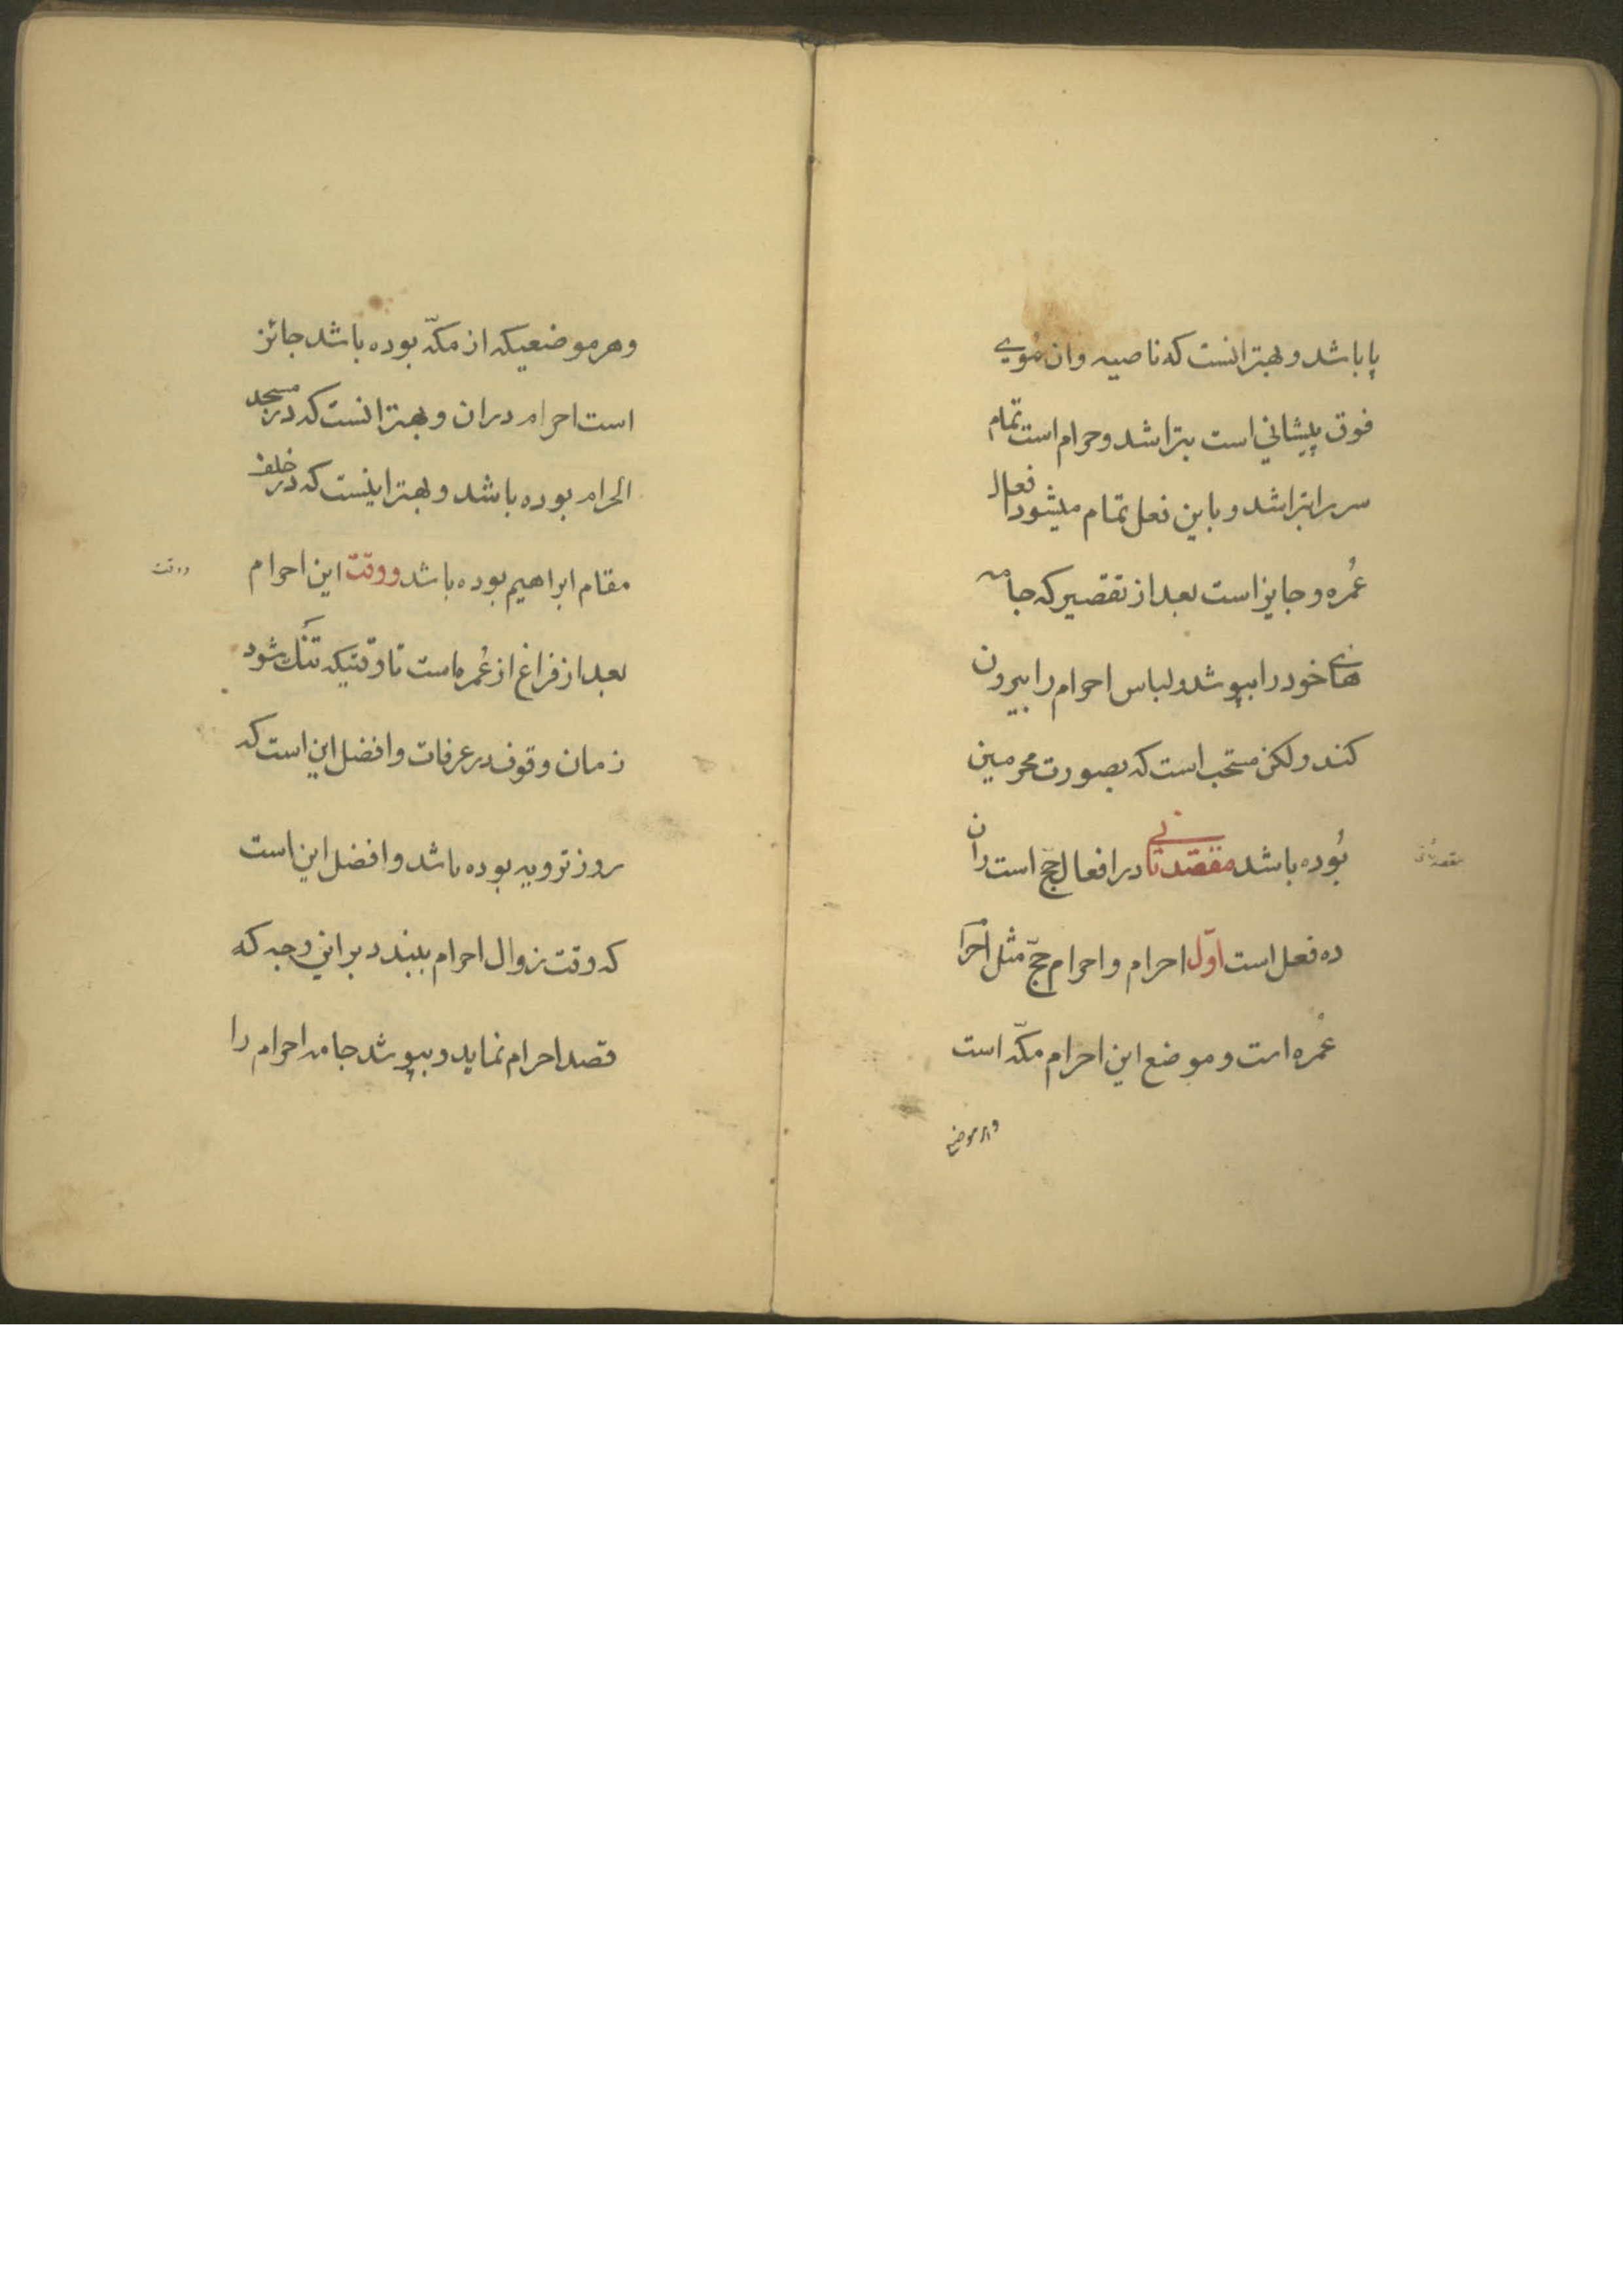 پا باشد و بهتر انست که ناصیه وان مُوی
فوق پیشانی است بتراشد و حرام است تمام
سر را بتراشد و باین فعل تمام میشود افعال
عُمره و جایز است بعد از تقصیر که جامه
های خود را بپوشد و لباس احرام را بیرون
کند و لکن مستحب است که بصورت محرمین
بُوده باشد مقصد ثانی در افعال حجّ است و ان
مقصد ثانی
ده فعل است اوّل احرام و احرام حجّ مثل احرا
عُمره است و موضع این احرام مکّه است
و هر موضع
و هر موضعیکه از مکّه بوده باشد جائز
است احرام دران و بهتر انست که در مسجد
الحرام بوده باشد و بهتر اینست که در خلف
مقام ابراهیم بوده باشد و وقت این احرام
و وقت
بعد از فراغ از عُمره است تا وقتیکه تَنک شود
زمان وقوف در عرفات و افضل این است که
روز ترویه بوده باشد و افضل این است
که وقت زوال احرام ببندد بر این وجه که
قصد احرام نماید و بپوشد جامه احرام را